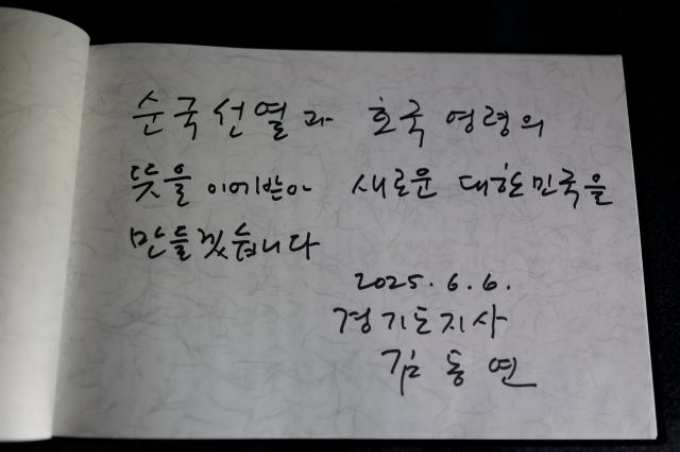 순국선열과 호국영령의
뜻을 이어받아 새로운 대한민국을
만들겠습니다
2025. 6. 6.
경기도지사
김동연